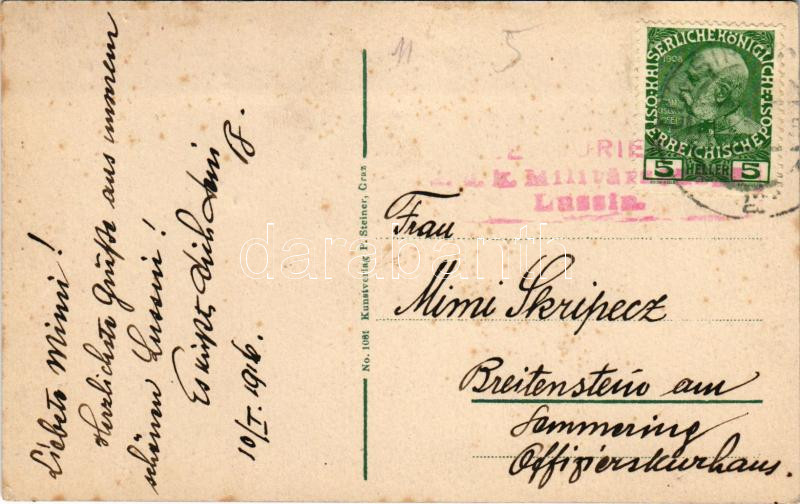 Liebste Mimi!
Herzlichste Grüße aus unserem
schönen Lussin!
Es küßt Dich Dein
10/I. 1916.
No. 1081 Kunstverlag P. Steiner, Graz
11
5
1908
KAISERLICHEKÖNIGLICHE
ÖSTERREICHISCHEPOST
5 HELLER 5
ZENSURIERT
Lussin.
Frau
Mimi Skripecz
Breitenstein am
Semmering
Offizierskurhaus.
darabanth